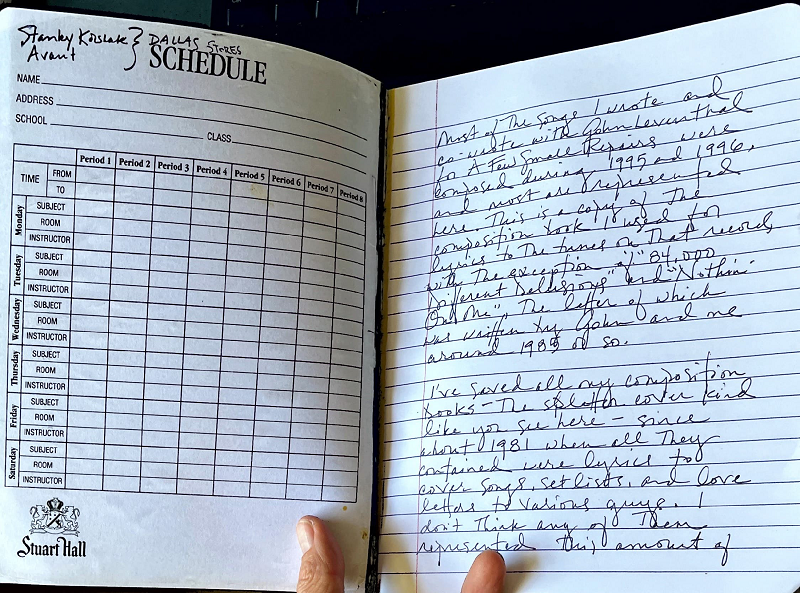 Stanley Korslake } DALLAS STORES
Avant
SCHEDULE
NAME
ADDRESS
SCHOOL CLASS
Period 1 Period 2 Period 3 Period 4 Period 5 Period 6 Period 7 Period 8
TIME FROM
TO
Monday SUBJECT
ROOM
INSTRUCTOR
Tuesday SUBJECT
ROOM
INSTRUCTOR
Wednesday SUBJECT
ROOM
INSTRUCTOR
Thursday SUBJECT
ROOM
INSTRUCTOR
Friday SUBJECT
ROOM
INSTRUCTOR
Saturday SUBJECT
ROOM
INSTRUCTOR
Stuart Hall
Most of the songs I wrote and
co-wrote with John Leventhal
for A Few Small Repairs were
composed during 1995 and 1996,
and most are represented
here. This is a copy of the
composition book I used for
lyrics to the tunes on that record,
with the exception of "84,000
Different Delusions" and "Nothin'
On Me" The latter of which
was written by John and me
around 1989 or so.
I've saved all my composition
books - The splatter cover kind
like you see here - since
about 1981 when all they
contained were lyrics to
cover songs, set lists, and love
letters to various guys. I
don't think any of them
represented this amount of